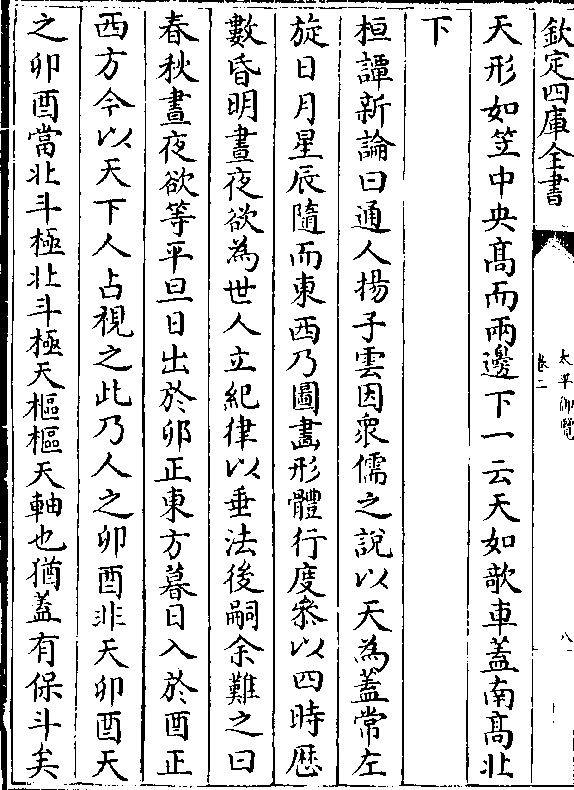 欽定四庫全書
太平御覽
卷二
八
天形如笠中央髙而兩邊下一云天如欹車蓋南髙北
下
桓譚新論曰通人揚子雲因衆儒之說以天為蓋常左
旋日月星辰隨而東西乃圖畫形體行度叅以四時厯
數昏明晝夜欲為世人立紀律以垂法後嗣余難之曰
春秋晝夜欲等平旦日出於卯正東方暮日入於酉正
西方今以天下人占視之此乃人之卯酉非天卯酉天
之卯酉當北斗極北斗極天樞樞天軸也猶蓋有保斗矣